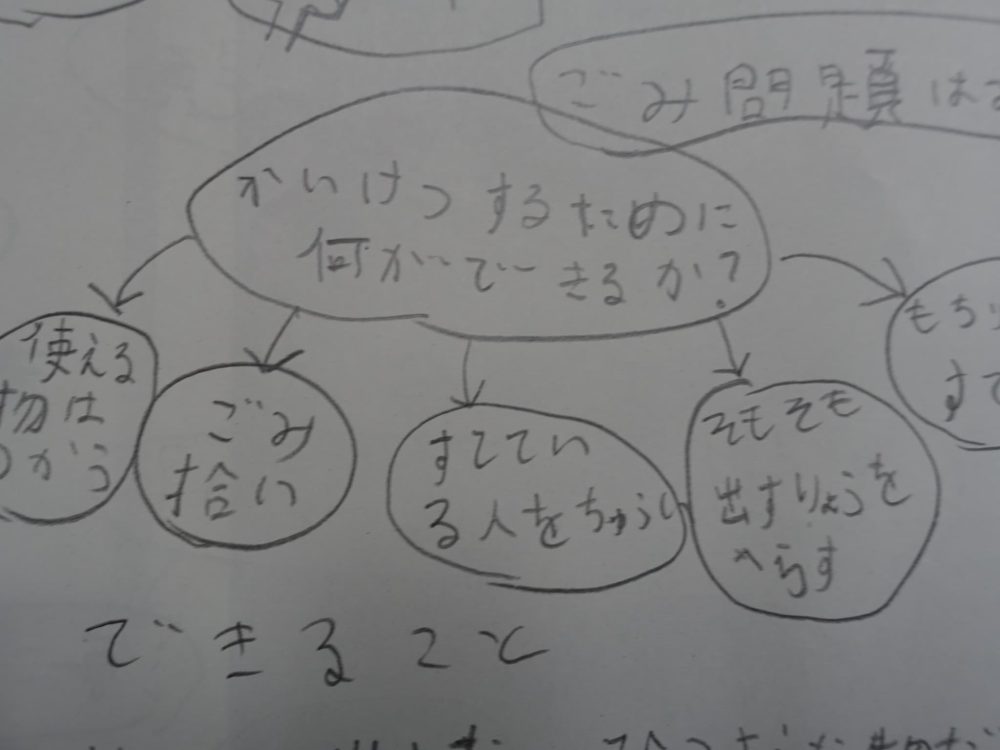 ごみ問題は
かいけつするために
何ができるか?
使える
物は
つかう
ごみ
拾い
すててい
る人をちゅうい
そもそも
出すりょうを
へらす
もち
すて
できること